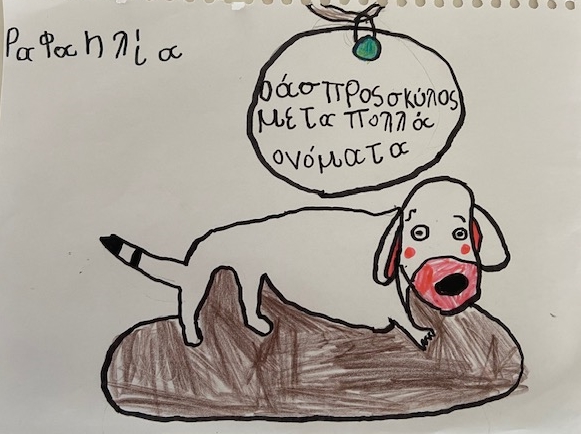 Ραφαηλία
ο άσπρος σκύλος
με τα πολλά
ονόματα